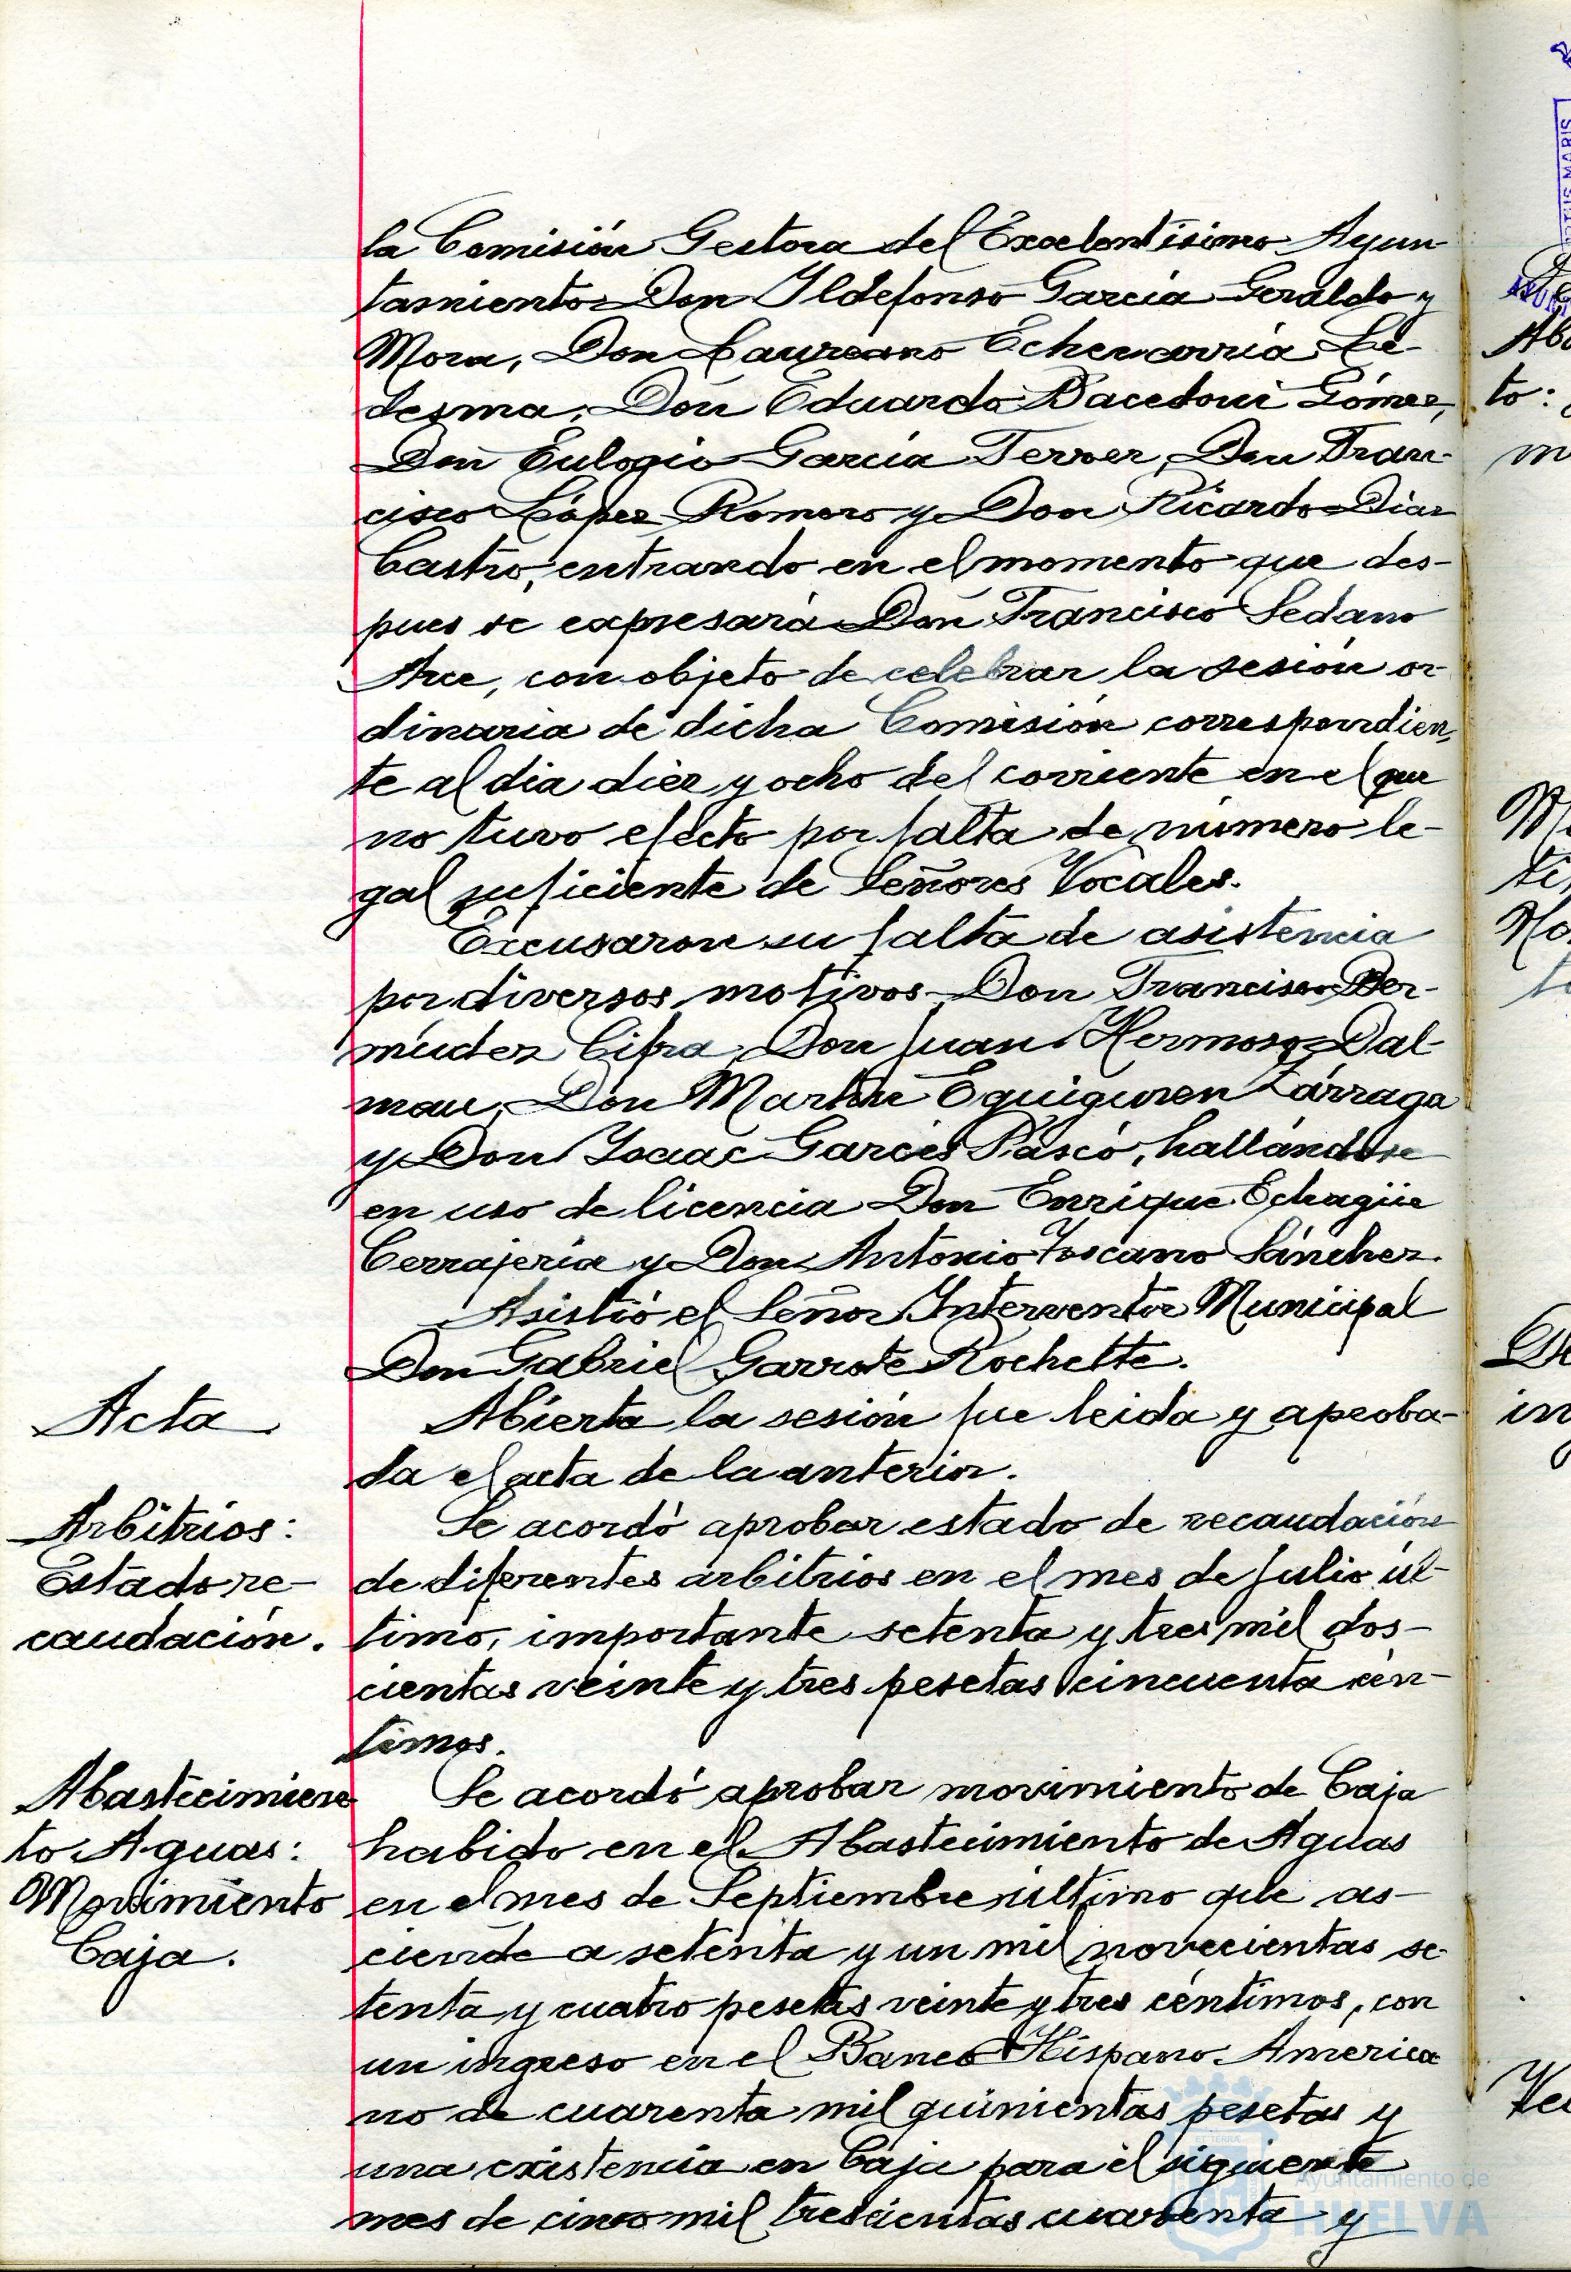 la Comisión Gestora del Excelentísimo Ayun-
tamiento Don Ildefonso García Geraldo y
Mora, Don Laureano Echevarría Le-
desma, Don Eduardo Bacedoni Gómez,
Don Eulogio García Ferrer, Don Fran-
cisco López Romero y Don Ricardo Diaz
Castro, entrando en el momento que des-
pues se expresará Don Francisco Sedano
Arce, con objeto de celebrar la sesión or-
dinaria de dicha Comisión correspondien-
te al dia diez y ocho del corriente en el que
no tuvo efecto por falta de número le-
gal suficiente de Señores Vocales.
Excusaron su falta de asistencia
por diversos motivos Don Francisco Ber-
múdez Cifra, Don Juan Hermoso Dal-
mau, Don Martín Eguiguren Zárraga
y Don Isaac Garcés Pascó, hallándose
en uso de licencia Don Enrique Echagüe
Cerrajería y Don Antonio Toscano Sánchez.
Asistió el Señor Interventor Municipal
Don Gabriel Garrote Rochette.
Acta
Abierta la sesión fue leida y aproba-
da el acta de la anterior.
Arbitrios:
Estado re-
caudación.
Se acordó aprobar estado de recaudación
de diferentes arbitrios en el mes de Julio úl-
timo, importante setenta y tres mil dos-
cientas veinte y tres pesetas cincuenta cén-
timos.
Abastecimien
to Aguas:
Movimiento
Caja.
Se acordó aprobar movimiento de Caja
habido en el Abastecimiento de Aguas
en el mes de Septiembre último que as-
ciende a setenta y un mil novecientas se-
tenta y cuatro pesetas veinte y tres céntimos, con
un ingreso en el Banco Hispano America
no de cuarenta mil quinientas pesetas y
una existencia en Caja para el siguiente
mes de cinco mil trescientas cuarenta y
Ayuntamiento de
HUELVA